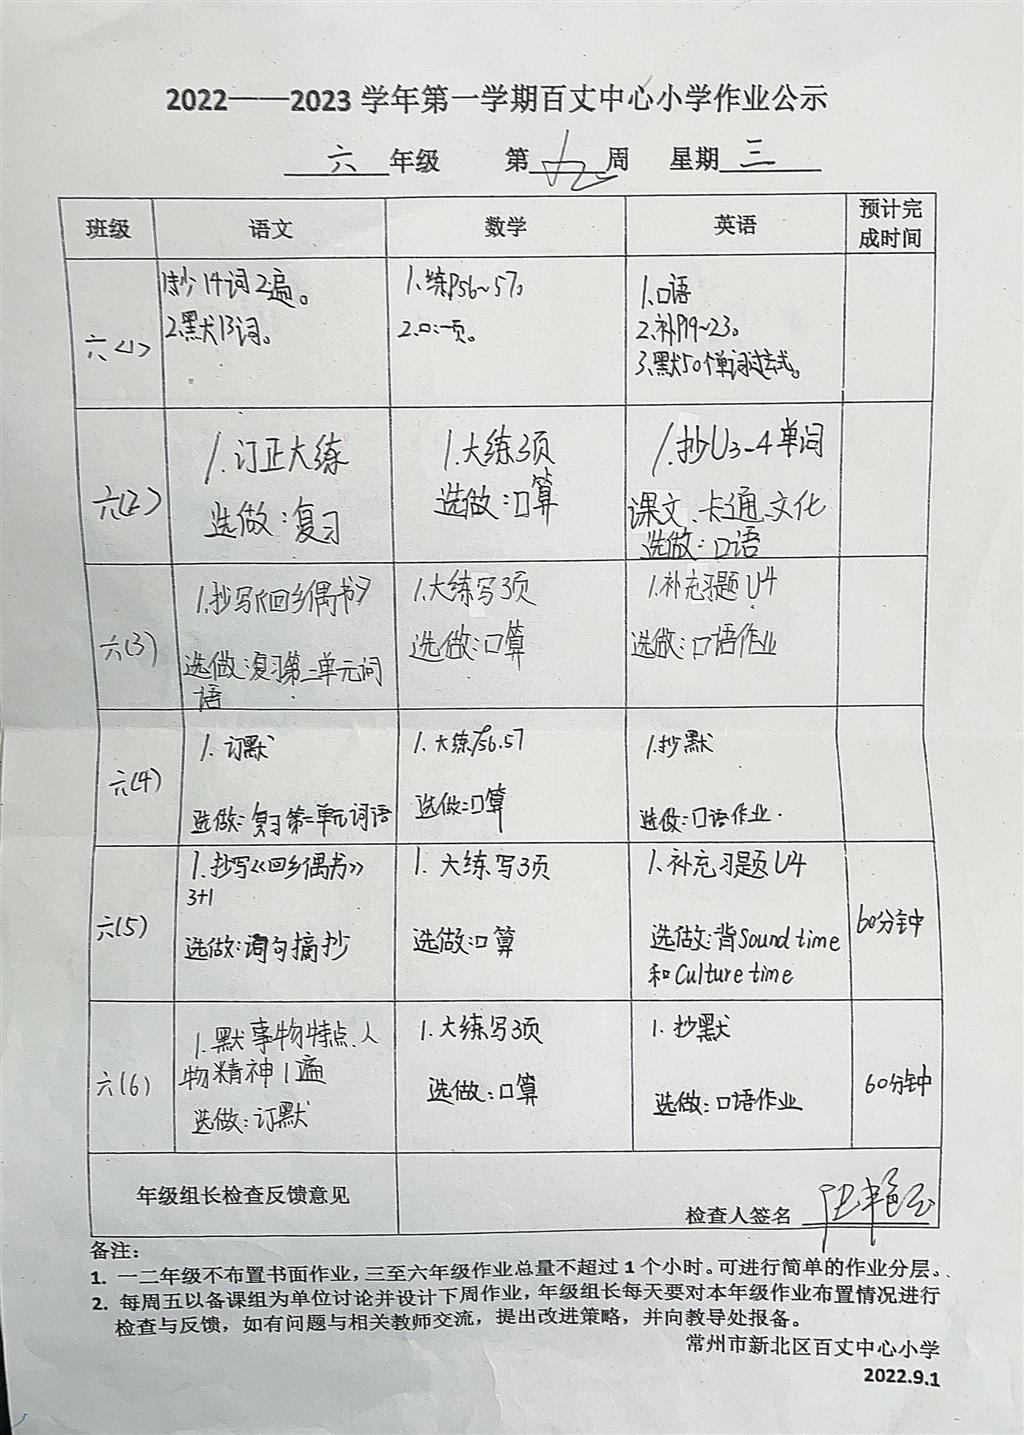 2022——2023 学年第一学期百丈中心小学作业公示
六 年级 第 九 周 星期 三
班级 语文 数学 英语 预计完成时间
六<1>
1抄14词2遍。
2.默13词。
1.练P56~57。
2.口:一页。
1.口语
2.补P19~23。
3.默50个单词过去式。
六(2)
1.订正大练
选做:复习
1.大练3页
选做:口算
1.抄U3-4单词
课文、卡通、文化
选做:口语
六(3)
1.抄写《回乡偶书》
选做:复习第二单元词
语
1.大练写3页
选做:口算
1.补充习题U4
选做:口语作业
六(4)
1.订默
选做:复习第二单元词语
1.大练P56.57
选做:口算
1.抄默
选做:口语作业.
六(5)
1.抄写《回乡偶书》
3+1
选做:词句摘抄
1.大练写3页
选做:口算
1.补充习题U4
选做:背Sound time
和Culture time
60分钟
六(6)
1.默事物特点、人
物精神1遍
选做:订默
1.大练写3页
选做:口算
1.抄默
选做:口语作业
60分钟
年级组长检查反馈意见
检查人签名
备注:
1. 一二年级不布置书面作业,三至六年级作业总量不超过 1 个小时。可进行简单的作业分层。
2. 每周五以备课组为单位讨论并设计下周作业,年级组长每天要对本年级作业布置情况进行
检查与反馈,如有问题与相关教师交流,提出改进策略,并向教导处报备。
常州市新北区百丈中心小学
2022.9.1